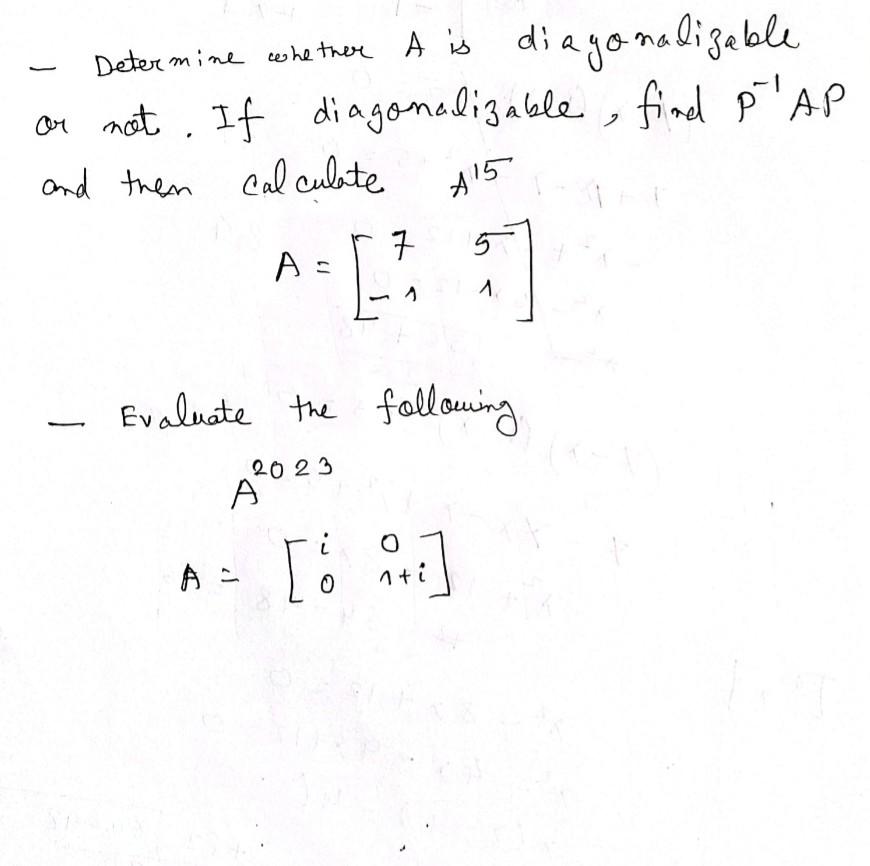 - Determine whether A is diagonalizable
or not. If diagonalizable, find P⁻¹AP
and then calculate A¹⁵
A = [ 7 5
-1 1 ]
- Evaluate the following
A²⁰²³
A = [ i 0
0 1+i ]